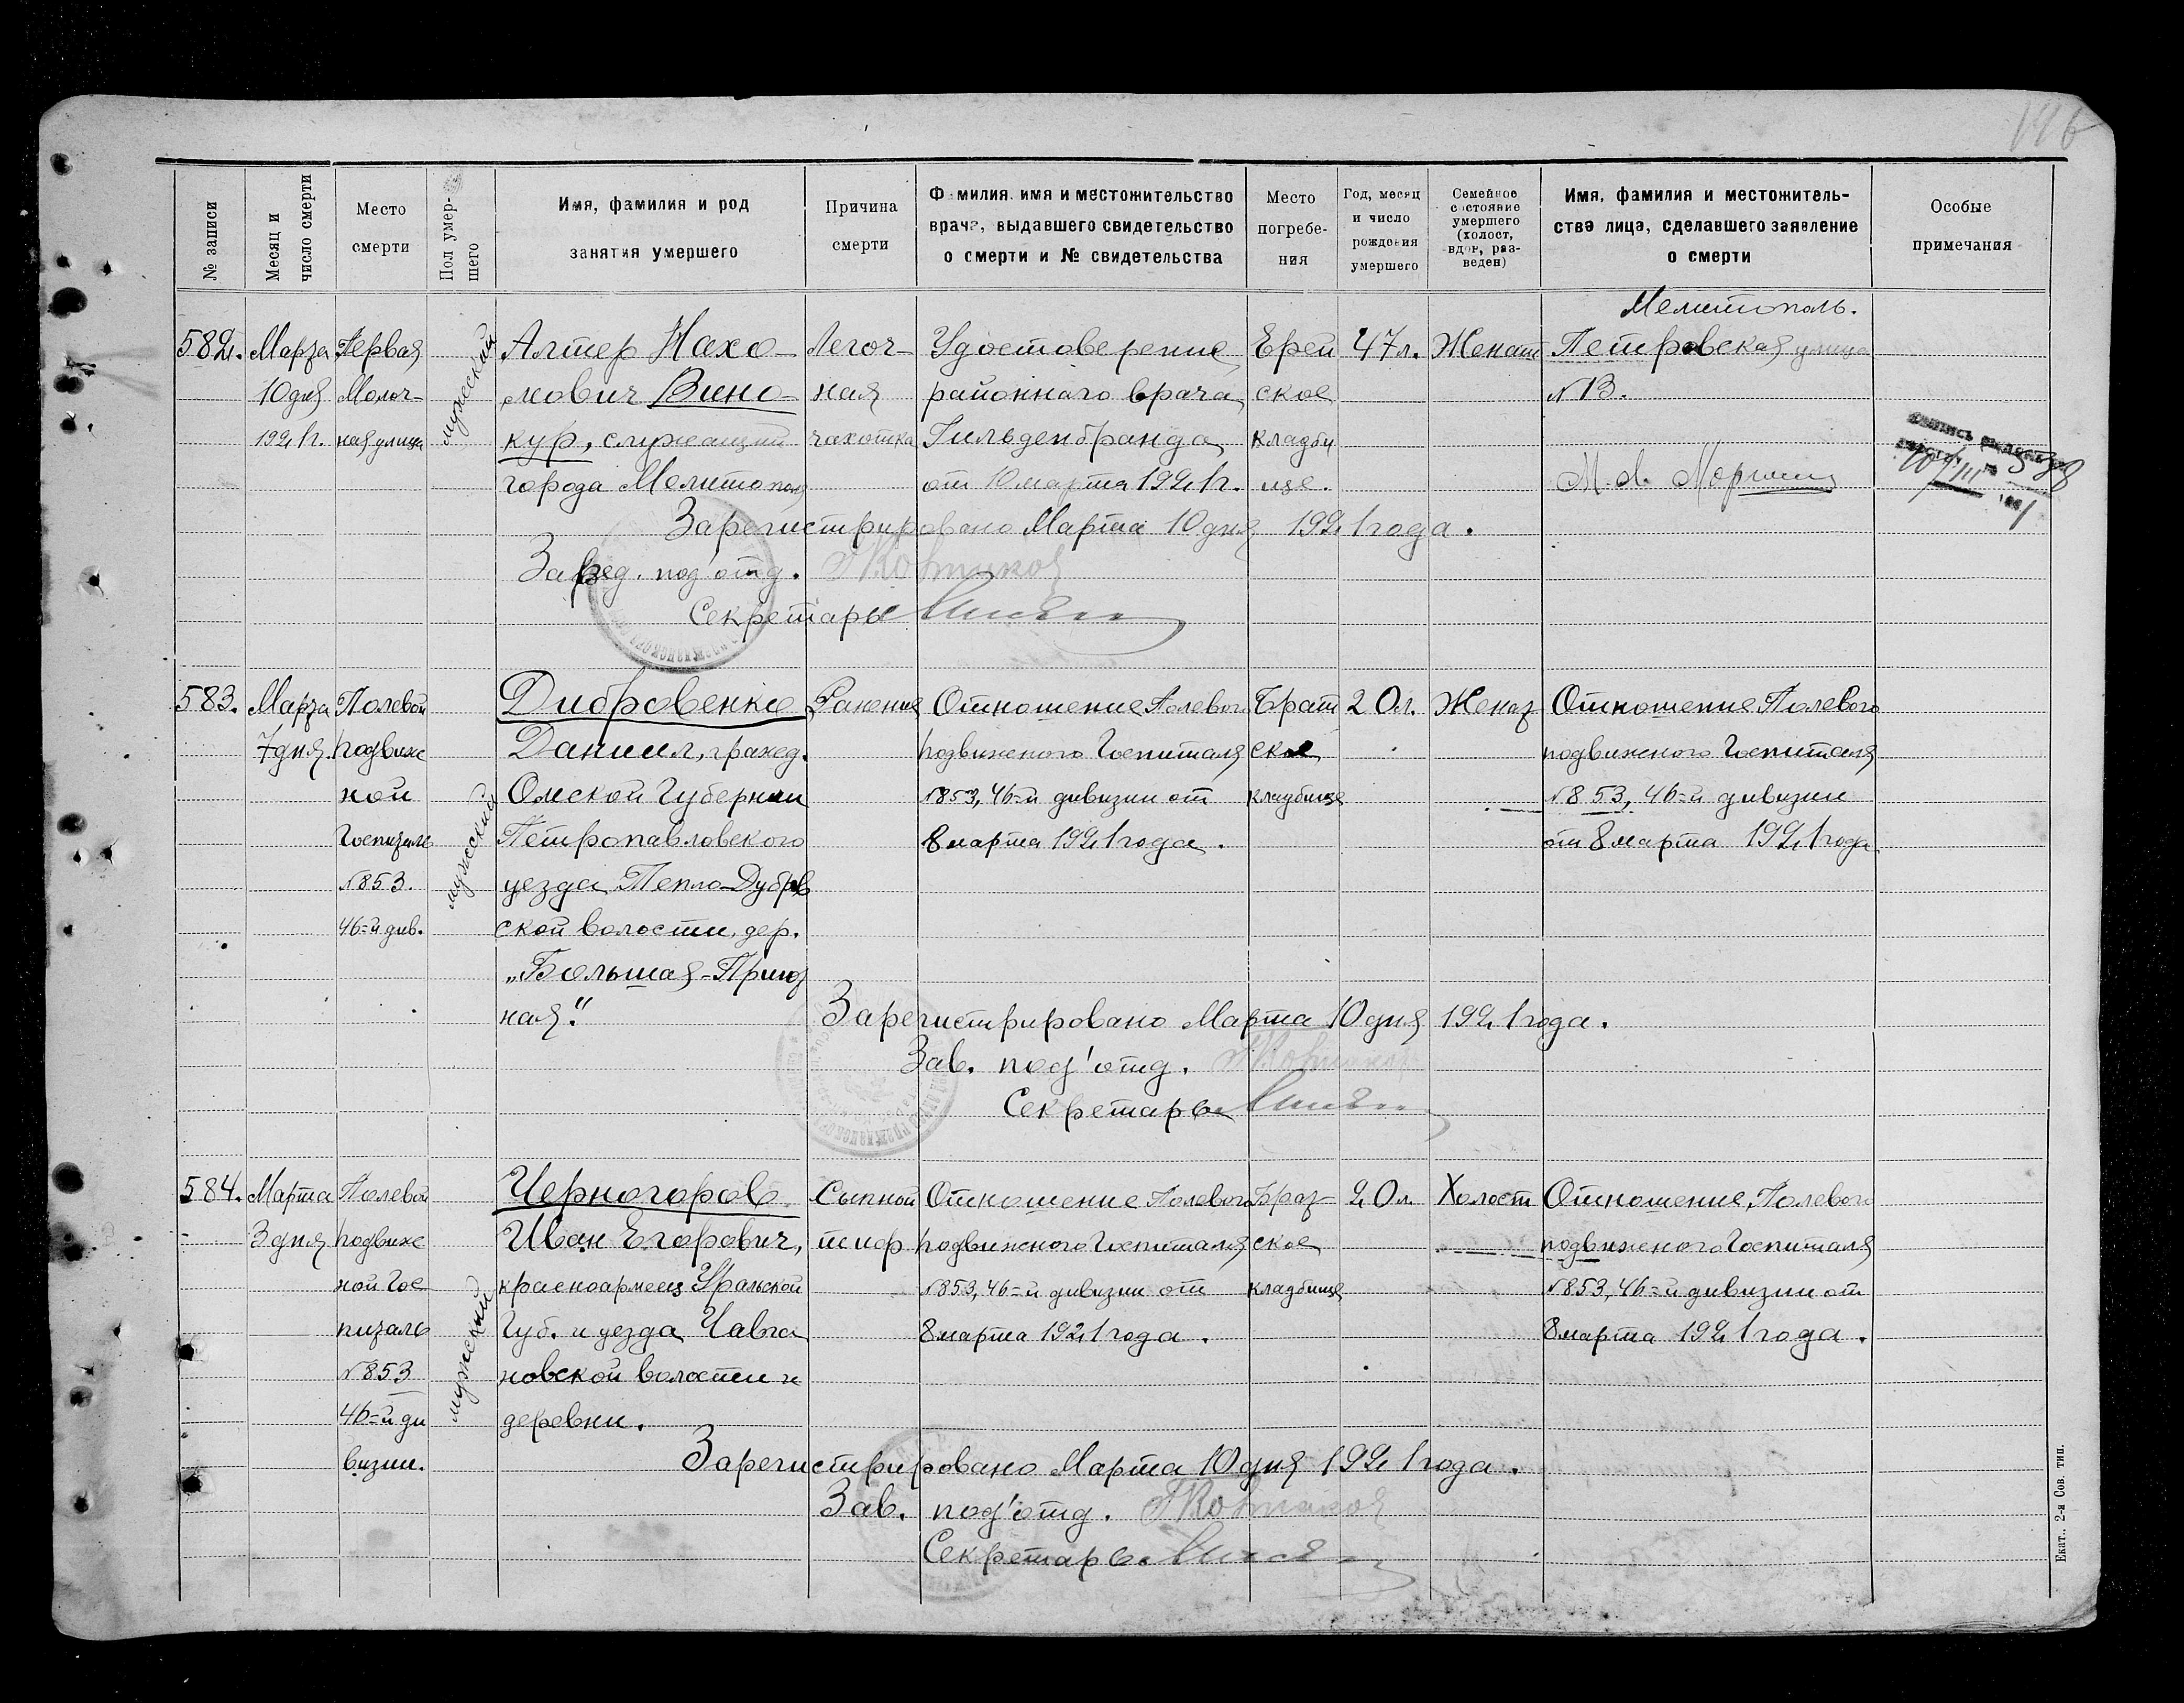 196
№ записи
Месяц и число смерти
Место смерти
Пол умершего
Имя, фамилия и род занятия умершего
Причина смерти
Фамилия, имя и местожительство врача, выдавшего свидетельство о смерти и № свидетельства
Место погребения
Год, месяц и число рождения умершего
Семейное состояние умершего (холост, вдов, разведен)
Имя, фамилия и местожительства лица, сделавшего заявление о смерти
Особые примечания
582.
Марта
10 дня
1921 г.
Первая
Молоч-
ная улица
мужеский
Алтер Нахо-
мович Вино-
кур, служащий
города Мелитополя
Легоч-
ная
чахотка
Удостоверение
районнаго врача
Гильденбранда
от 10 марта 1921 г.
Ерей
ское
кладби
ще.
47 л.
Женат
Мелитополь.
Петровская улица
№ 13.
Зарегистрировано Марта 10 дня 1921 года.
Завед. под'отд.
Секретарь
583.
Марта
7 дня.
Полевой
подвиж
ной
Госпиталь
№ 853.
46-й див.
мужеский
Дибровенко
Даниил, гражд.
Омской Губернии
Петропавловского
уезда Тепло-Дубров
ской волости, дер.
Ранение
Отношение Полевого
подвижного Госпиталя
№ 853, 46-й дивизии от
8 марта 1921 года.
Брат
ское
кладбище
20 л.
Женат
Отношение Полевого
подвижного Госпиталя
№ 853, 46-й дивизии
от 8 марта 1921 года
„Большая-
ная".
Зарегистрировано Марта 10 дня 1921 года.
Зав. под'отд.
Секретарь
584.
Марта
3 дня
Полевой
подвиж
ной Гос
питаль
№ 853
46-й ди
визии.
мужеский
Черногоров
Иван Егорович,
красноармеец Уральской
Губ. и уезда
новской волости и
деревни.
Сыпной
тиф
Отношение Полевого
подвижного Госпиталя
№ 853, 46-й дивизии от
8 марта 1921 года.
Брат
ское
кладбище
20 л.
Холост
Отношение Полевого
подвижного Госпиталя
№ 853, 46-й дивизии от
8 марта 1921 года.
Зарегистрировано Марта 10 дня 1921 года.
Зав. под'отд.
Секретарь.
Екат., 2-я Сов. тип.